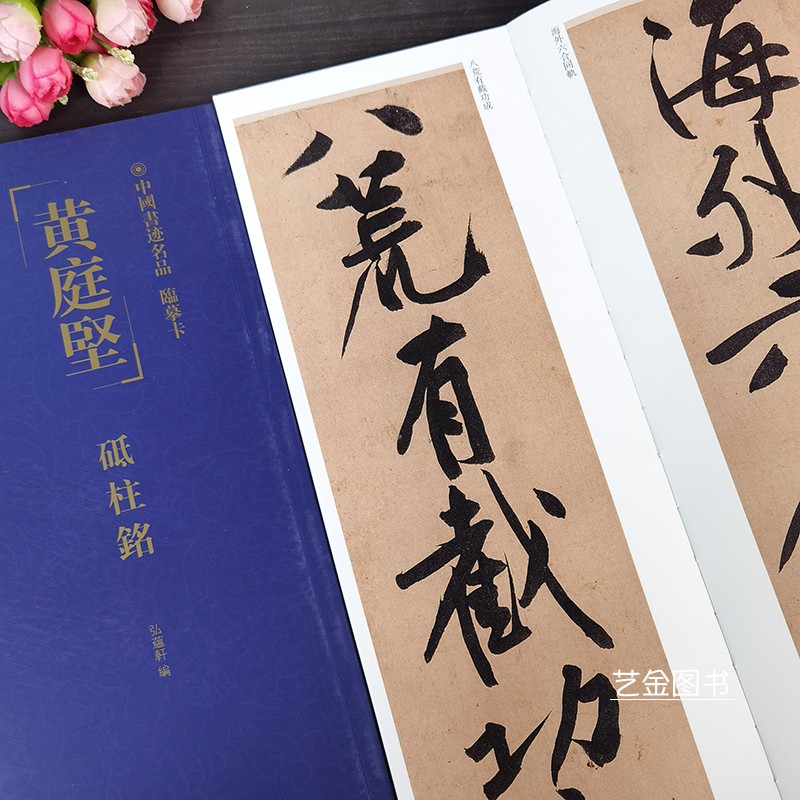 中國書迹名品 臨摹卡
黄庭堅
砥柱銘
弘蘊軒 編
海外六合同軌
海外六
八荒有截功成
八荒有截功
艺金图书